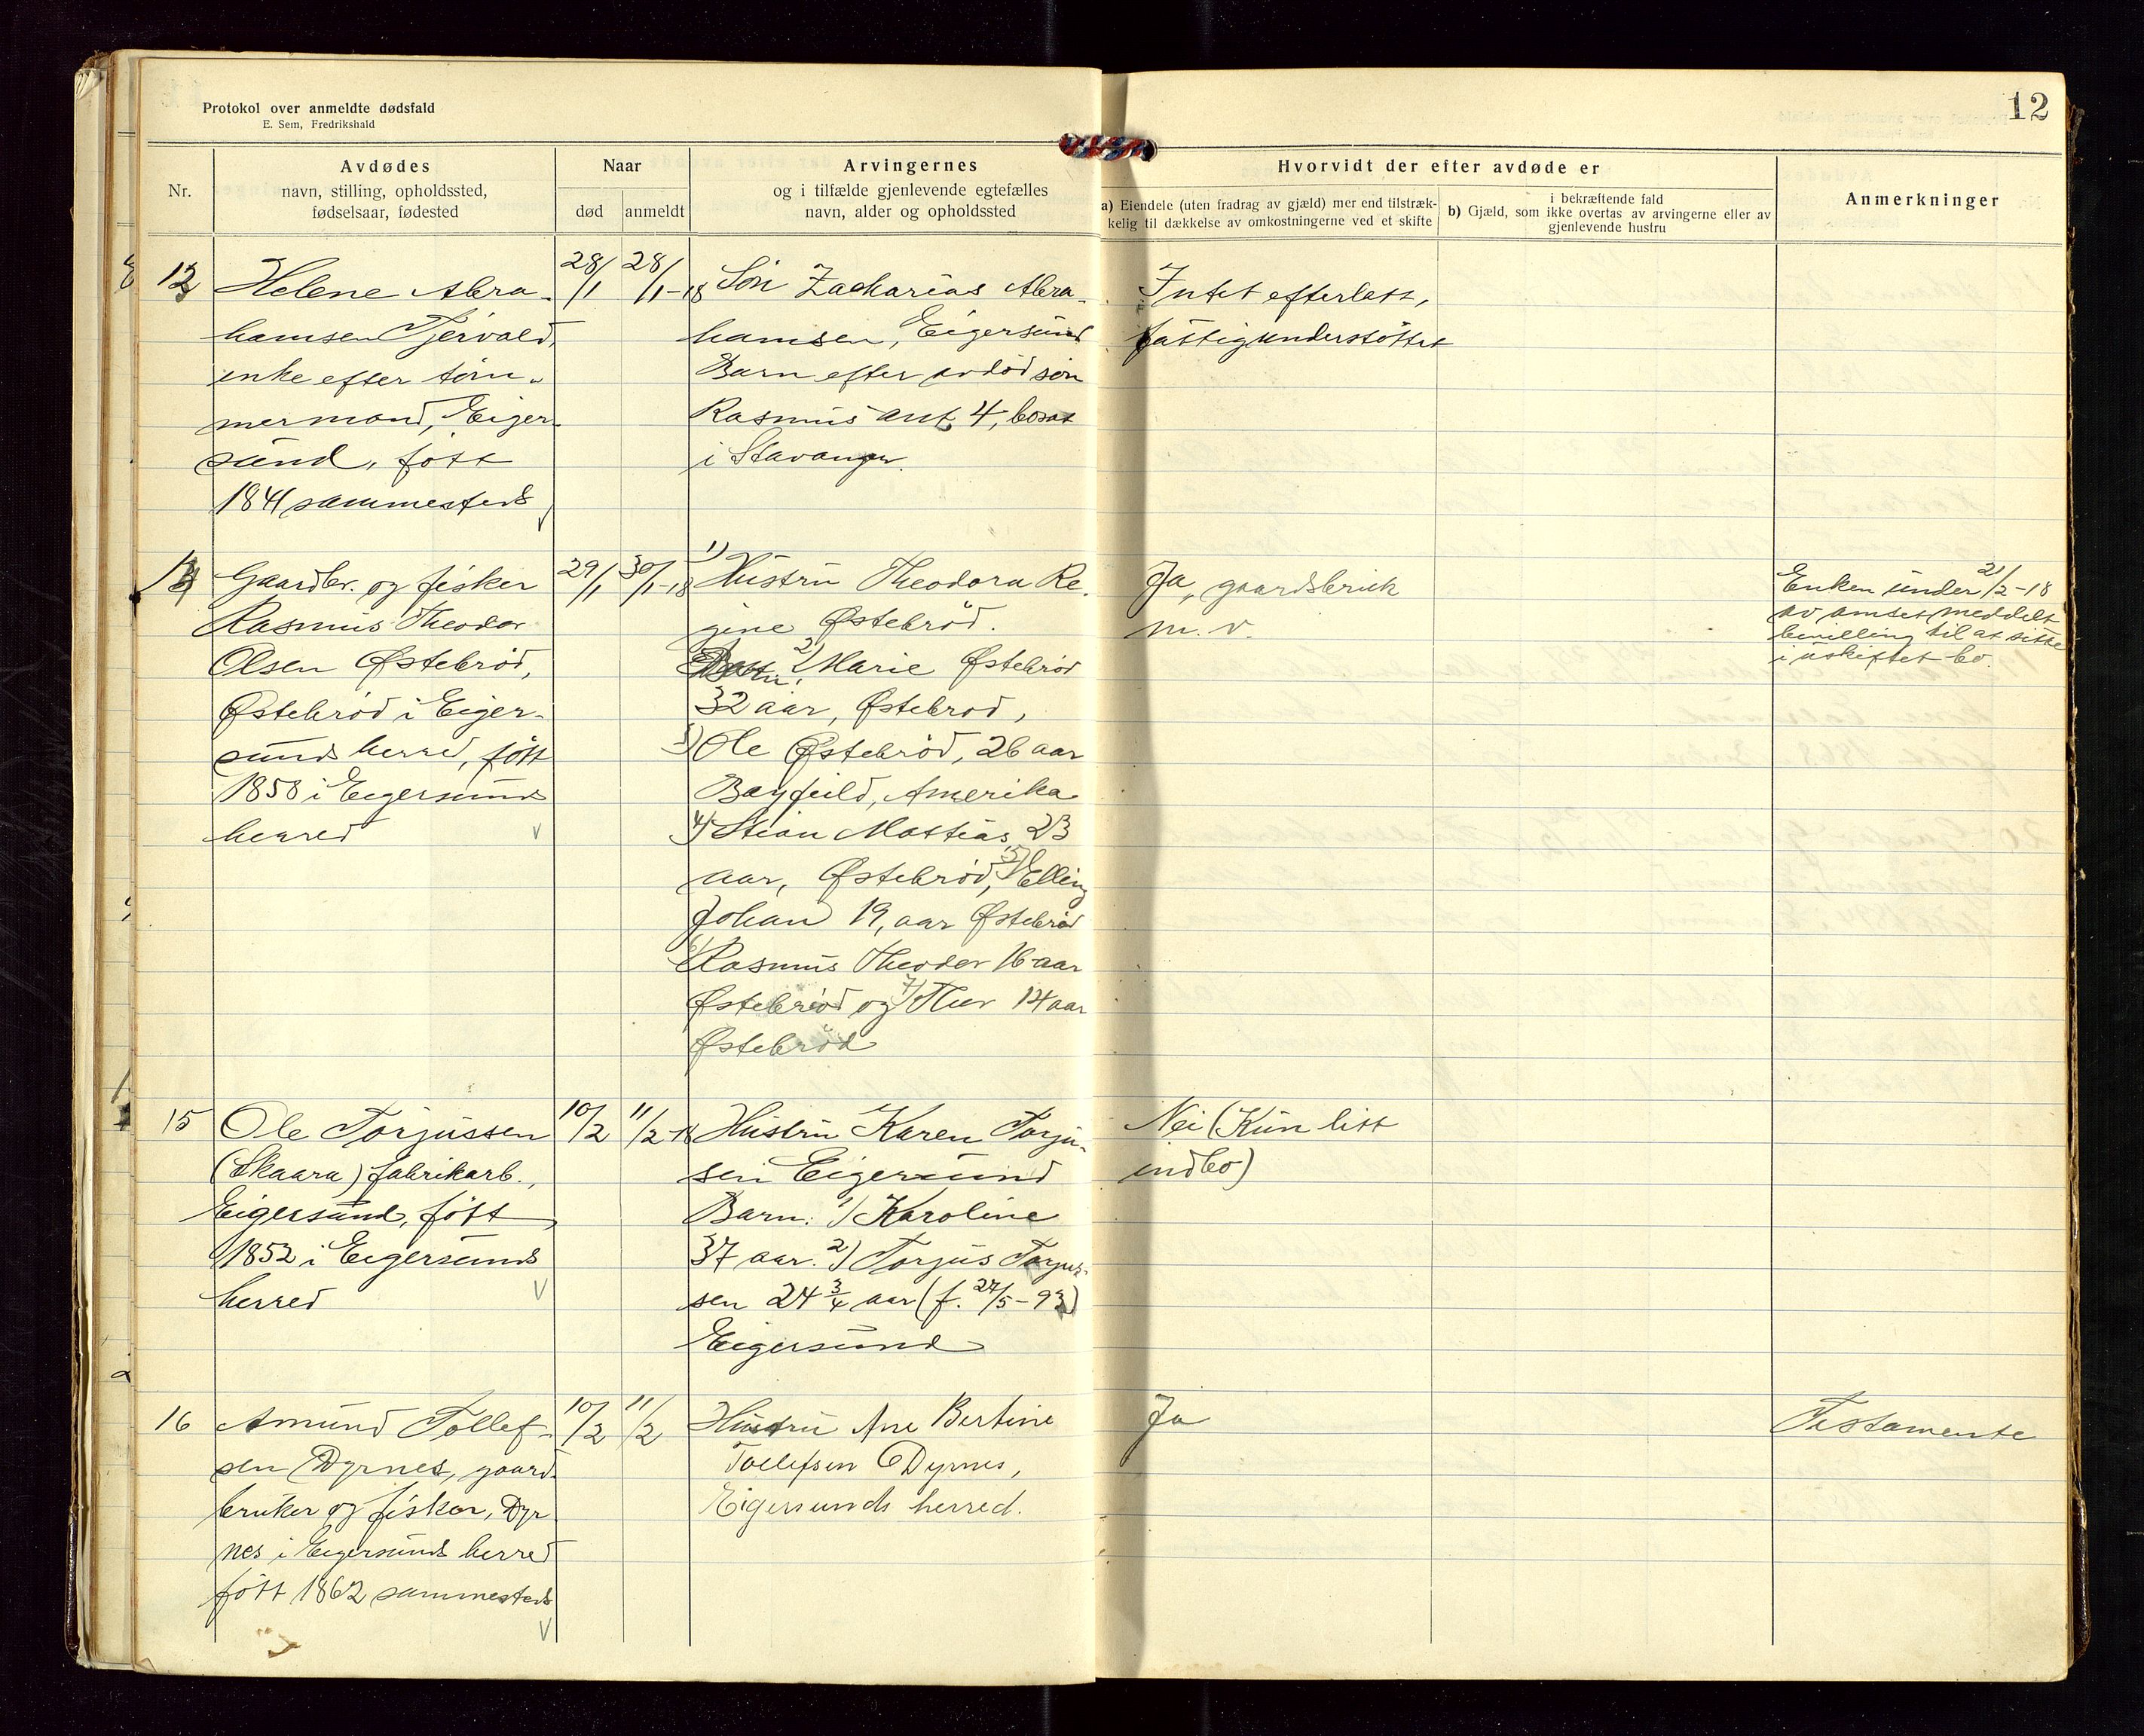 Protokol over anmeldte dødsfald
E. Sem, Fredrikshald
12
Nr.
Avdødes
navn, stilling, opholdssted,
fødselsaar, fødested
Naar
død
anmeldt
Arvingernes
og i tilfælde gjenlevende egtefælles
navn, alder og opholdssted
Hvorvidt der efter avdøde er
a) Eiendele (uten fradrag av gjæld) mer end tilstræk-
kelig til dækkelse av omkostningerne ved et skifte
i bekræftende fald
b) Gjæld, som ikke overtas av arvingerne eller av
gjenlevende hustru
Anmerkninger
13
Helene Abra-
hamsen Tjervald,
enke efter tøm-
mermand, Eiger-
sund, født
1841 sammesteds
28/1
28/1-18
Søn Zacharias Abra-
hamsen, Eigersund
Barn efter avdød søn
Rasmus ant. 4, bosat
i Stavanger.
Intet efterlatt,
fattigunderstøttet
14
Gaardbr. og fisker
Rasmus Theodor
Olsen Østebrød,
Østebrød i Eiger-
sunds herred, født
1858 i Eigersunds
herred
29/1
30/1-18
1) Hustru Theodora Re-
gine Østebrød.
Barn: 2) Marie Østebrød
32 aar, Østebrød,
3) Ole Østebrød, 26 aar
Bayfeild, Amerika
4) Stian Mattias 23
aar, Østebrød, 5) Elling
Johan 19, aar Østebrød
6) Rasmus Theodor 16 aar
Østebrød og 7) Thor 14 aar
Østebrød
Ja, gaardsbruk
m. v.
Enken under 2/2-18
av amtet meddelt
bevilling til at sitte
i uskiftet bo.
15
Ole Torjussen
(Skaara) fabrikarb.,
Eigersund, født
1852 i Eigersunds
herred
10/2
11/2-18
Hustru Karen Torju-
sen Eigersund
Barn: 1) Karoline
37 aar. 2) Torjus Torjus-
sen 24 3/4 aar (f. 27/5-93)
Eigersund
Nei (Kun litt
indbo)
16
Amund Tollef-
sen Dyrnes, gaard-
bruker og fisker, Dyr
nes i Eigersunds herred
født 1862 sammesteds
10/2
11/2
Hustru Ane Bertine
Tollefsen Dyrnes,
Eigersunds herred.
Ja
Testamente